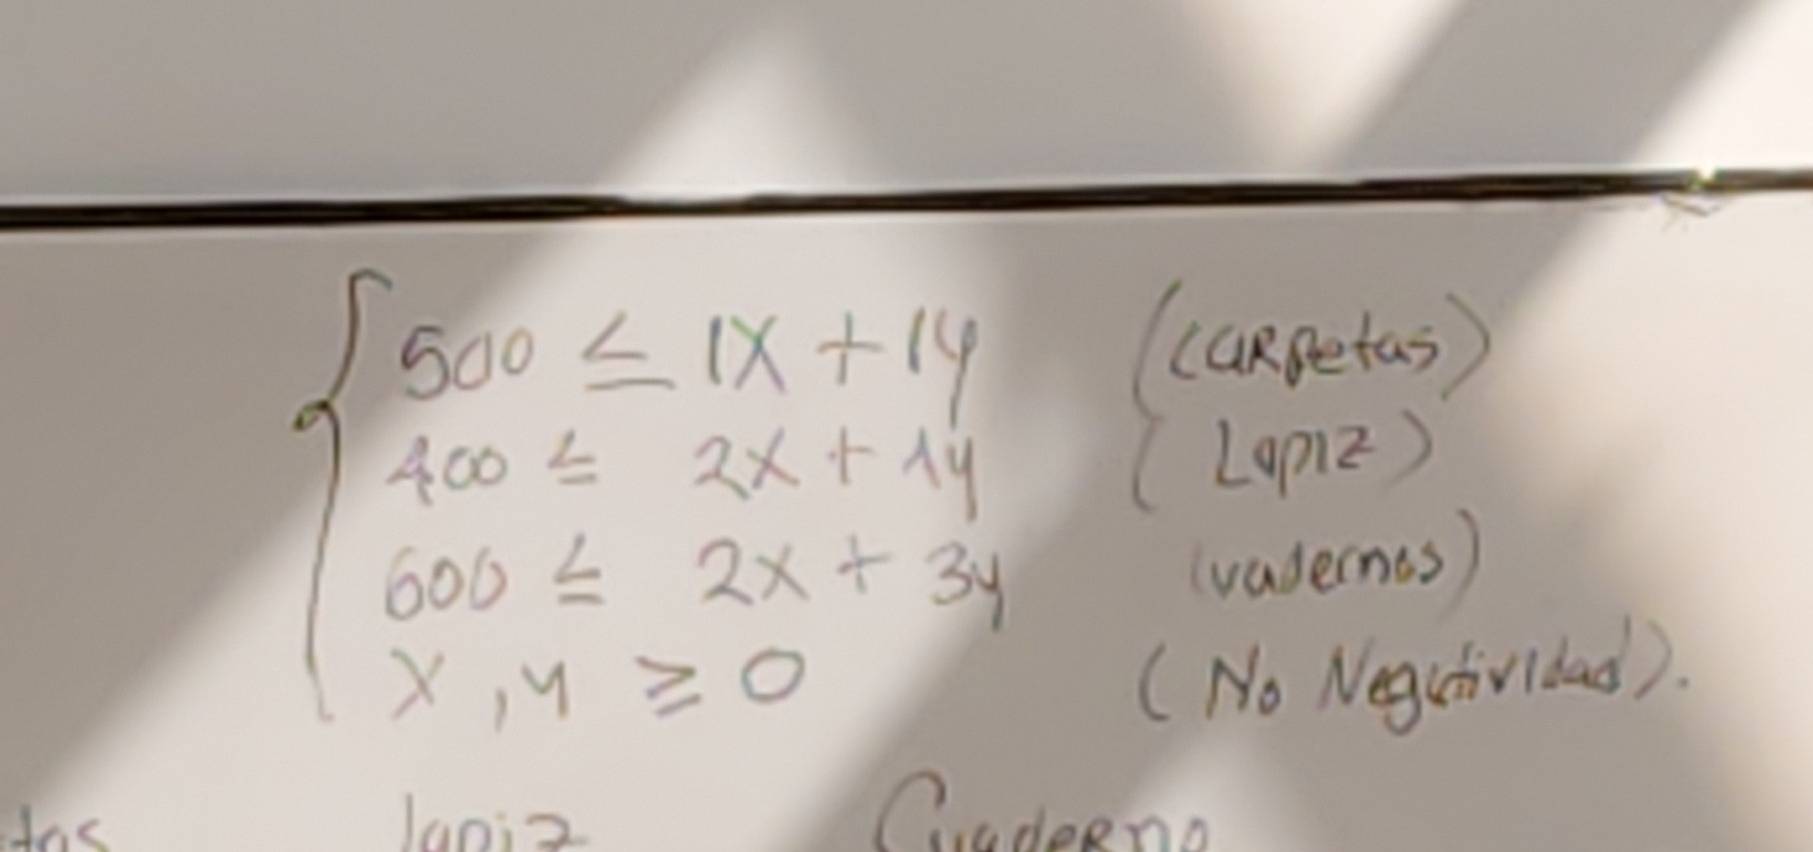 500 ≤ 1X + 1y (CARPetas)
400 ≤ 2X + 1y ( Lapiz )
600 ≤ 2X + 3y (vadernos)
X , y ≥ 0 ( No Negatividad ).
tas lapiz Cuaderno